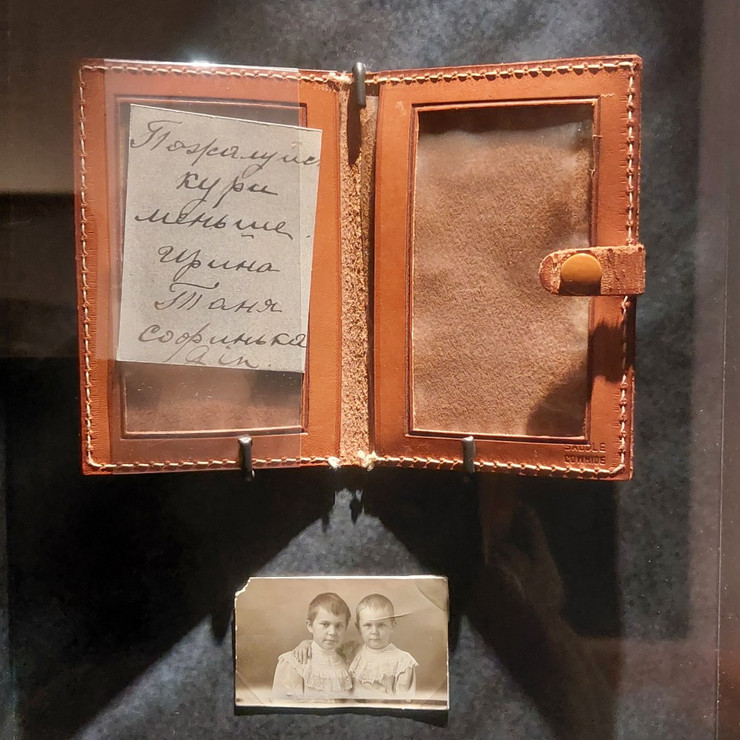 Пожалуйс
кури
меньше.
Ирина
Таня
софинька
SADDLE
COWHIDE